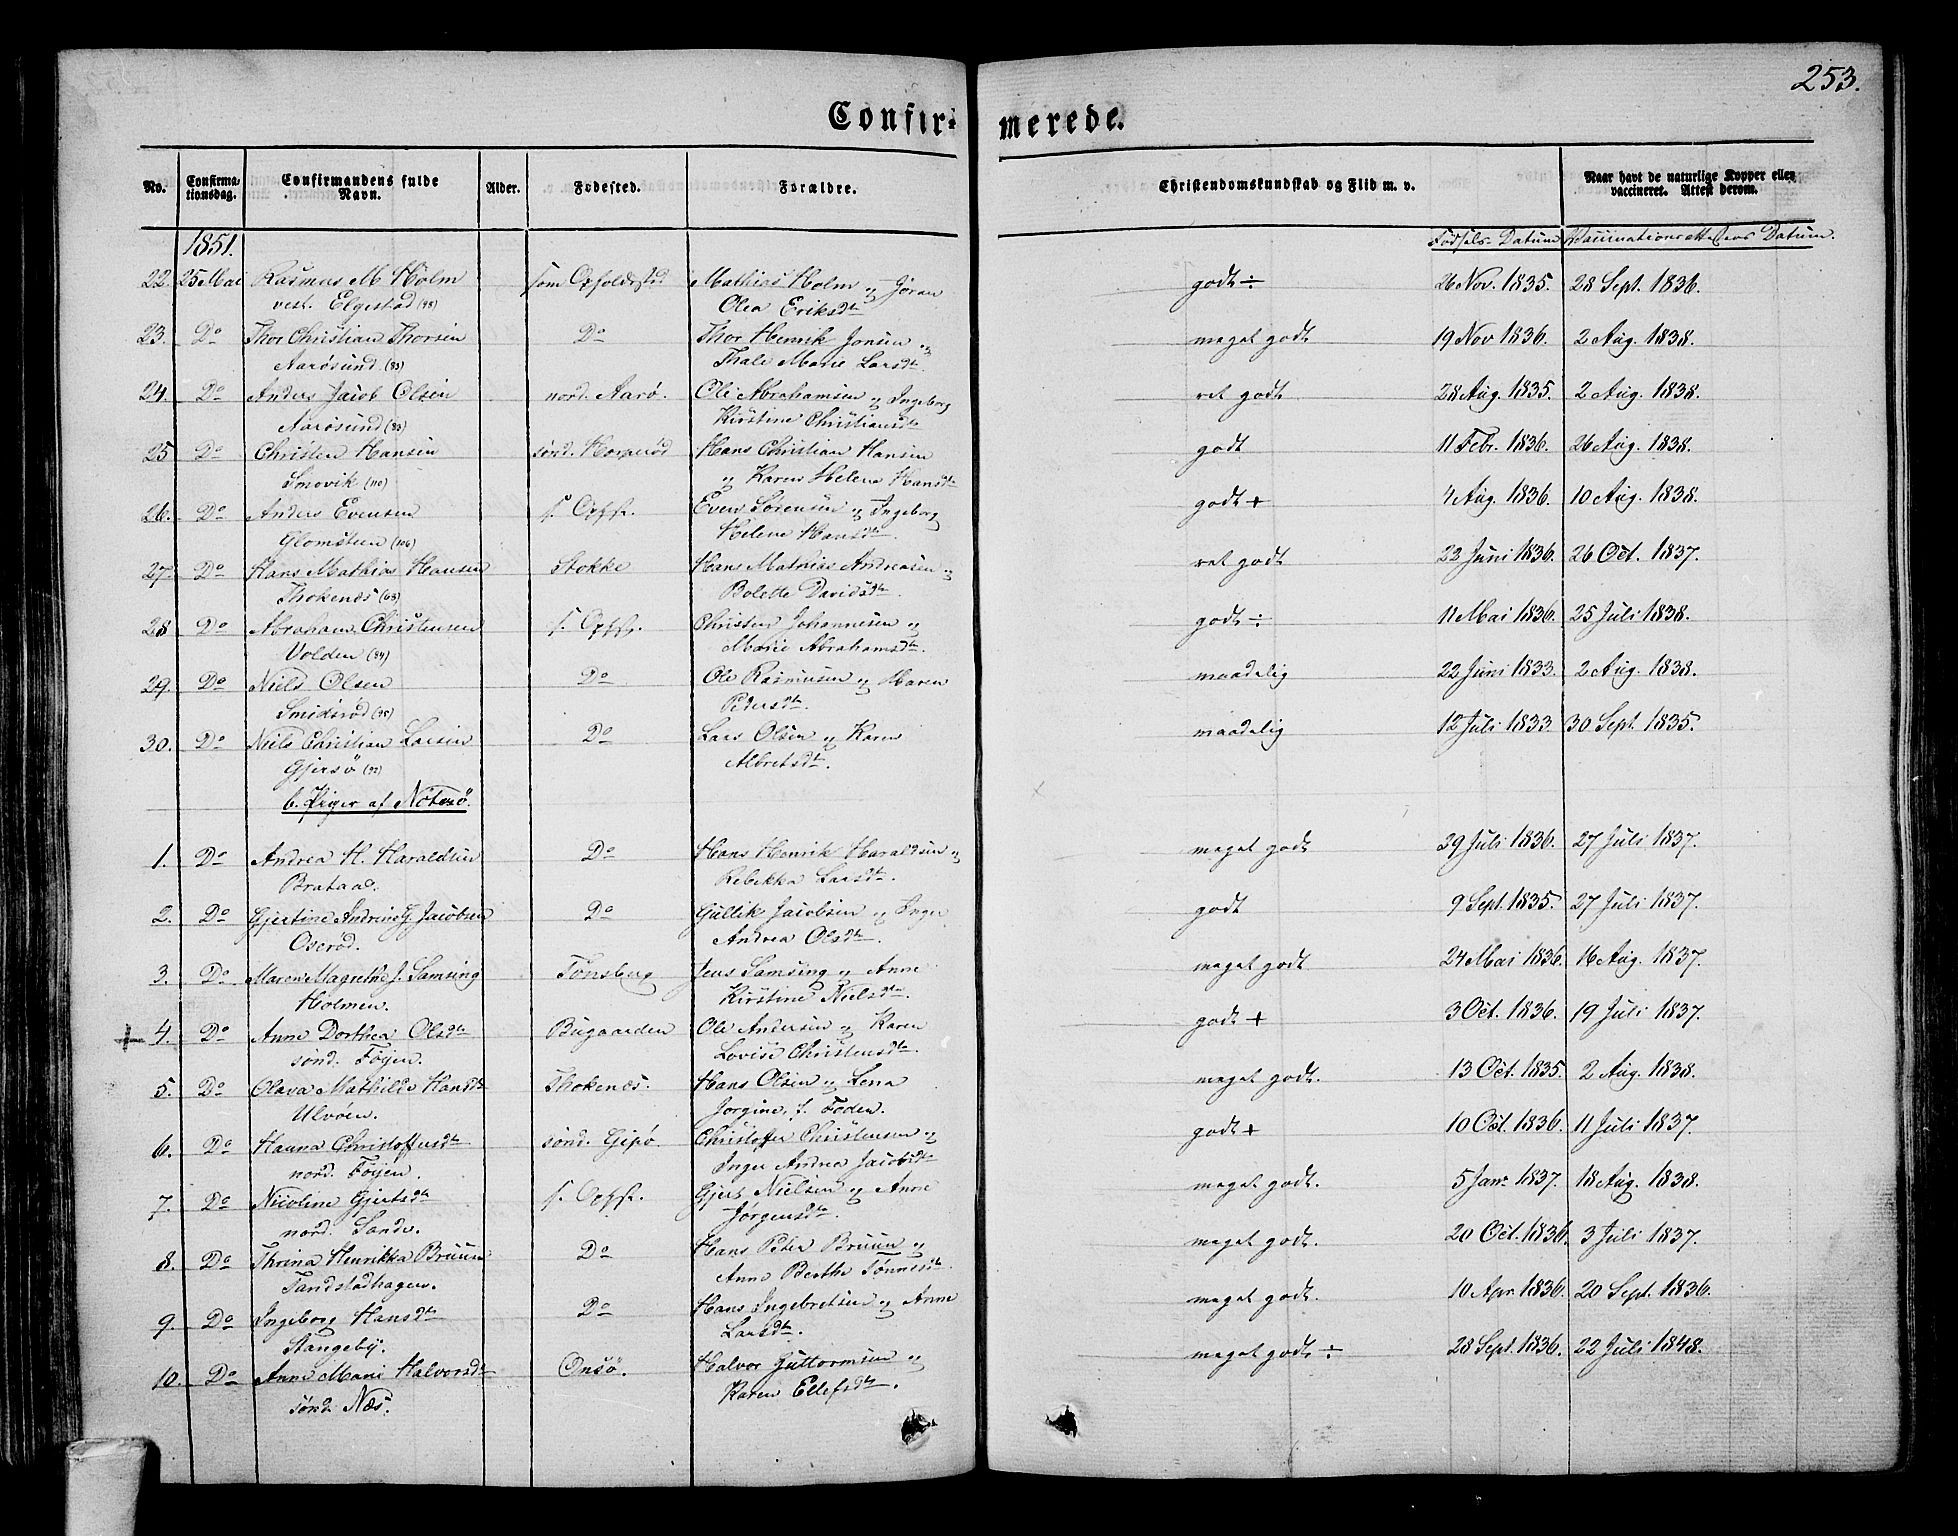 253.
Confir- merede.
No.
Confirma-
tionsdag.
Confirmandens fulde
Navn.
Alder.
Fødested.
Forældre.
Christendomskundskab og Flid m. v.
Naar havt de naturlige Kopper eller
vaccineret. Attest derom.
1851.
Fødsels-Datum Vaccinationsattestens Datum.
22. 25 Mai Rasmus M Holm som Opholdssted Mathias Holm og Jøran godt ÷ 26 Nov. 1835. 28 Sept. 1836.
vest. Elgestad (98) Olea Eriksdtr
23. Do Thor Christian Thorsen Do Thor Henrik Jonsen og meget godt 19 Nov 1836. 2 Aug. 1838.
Aarøsund (93) Thale Marie Larsdtr.
24. Do Anders Jacob Olsen nord. Aarø. Ole Abrahamsen og Ingeborg ret godt 28 Aug. 1835. 2 Aug. 1838.
Aarøsund (93) Kirstine Christiansdtr
25 Do Christen Hansen sønd. Hoxerød Hans Christian Hansen godt 11 Febr. 1836. 26 Aug. 1838.
Smovik (110) og Karen Helene Hansdtr
26. Do Anders Evensen s. Opst. Even Sørensen og Ingeborg godt + 4 Aug. 1836. 10 Aug. 1838.
Glomsteen (106) Helene Hansdtr.
27. Do Hans Mathias Hansen Stokke Hans Mathias Andreasen og ret godt 23 Juni 1836. 26 Oct. 1837.
Thokenæs (63) Bolette Davidsdtr.
28 Do Abraham Christensen s. Opst. Christen Johannesen og godt ÷ 11 Mai 1836. 25 Juli 1838.
Volden (84) Marie Abrahamsdtr.
29. Do Niels Olsen Do Ole Rasmusen og Maren maadelig 22 Juni 1833. 2 Aug. 1838.
Smidsrød (95) Pedersdtr.
30. Do Niels Christian Larsen Do Lars Olsen og Karen maadelig 12 Juli 1833. 30 Sept. 1835.
Gjersø (92) Albretsdtr.
b. Piger af Nøterø.
1. Do Andrea H. Haraldsen Do Hans Henrik Haraldsen og meget godt 29 Juli 1836. 27 Juli 1837.
Brataas. Rebekka Larsdtr.
2. Do Gjertine Andrine G. Jacobsen Do Gullik Jacobsen og Inger godt 9 Sept. 1835. 27 Juli 1837.
Oserød. Andrea Olsdtr.
3. Do Maren Magrethe J. Samsing Tønsberg Jens Samsing og Anne meget godt 24 Mai 1836. 16 Aug. 1837.
Holmen. Kirstine Nielsdtr.
+ 4. Do Anne Dorthea Olsdtr Bugaarden Ole Andersen og Karen godt + 3 Oct. 1836. 19 Juli 1837.
sønd. Føijen. Lovise Christensdtr.
5. Do Olava Mathilde Hansdtr Thokenæs. Hans Olsen og Lena meget godt. 13 Oct. 1835 2 Aug. 1838.
Ulvøen. Jorgine, f. Foden.
6. Do Hanna Christoffersdtr sønd. Gipø. Christoffer Christensen og godt + 10 Oct. 1836. 11 Juli 1837.
nord. Føijen. Inger Andrea Jacobsdtr
7. Do Nicoline Gjertsdtr s. Opst. Gjert Nielsen og Anne meget godt. 5 Janr. 1837. 18 Aug. 1838.
nord. Sande. Jørgensdtr.
8. Do Thrina Henrikka Bruun Do Hans Peter Bruun og meget godt. 20 Oct. 1836. 3 Juli 1837.
Tandstadhagen. Anne Berthe Tønnesdtr.
9. Do Ingeborg Hansdtr Do Hans Ingebretsen og Anne meget godt. 10 Apr. 1836. 20 Sept. 1836.
Stangeby. Larsdtr.
10. Do Anne Marie Halvorsdtr Onsø. Halvor Guttormsen og meget godt ÷ 28 Sept. 1836. 22 Juli 1848.
sønd. Næs. Karen Ellefsdtr.